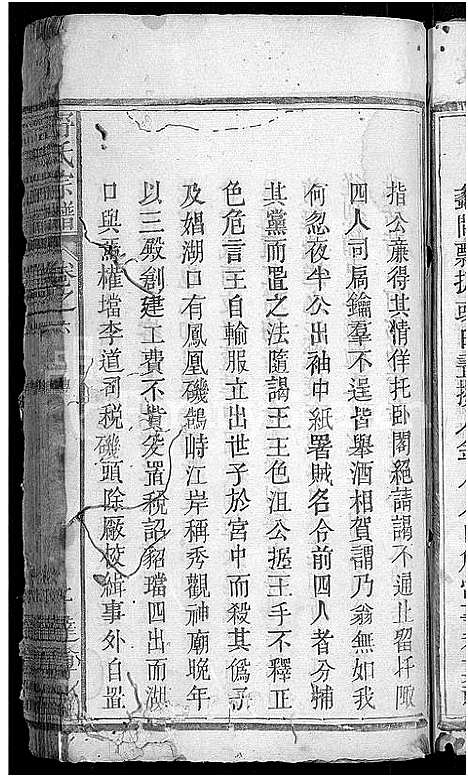 指公廉得其情佯托卧閣絕請謁不通止畱扞陬
四人司扃鑰羣不逞皆舉酒相賀謂乃翁無如我
何忽夜半公出袖中紙署賊名令前四人者分捕
其黨而置之法隨謁王王色沮公握王手不釋正
色危言王自輸服立出世子於宮中而殺其僞子
及娼湖口有鳳凰磯鵠峙江岸稱秀觀神廟晚年
以三殿創建工費不貲爰置稅詔貂璫四出而湖
口與焉權璫李道司稅磯頭除廠校緝事外自置
氏宗譜 卷之六